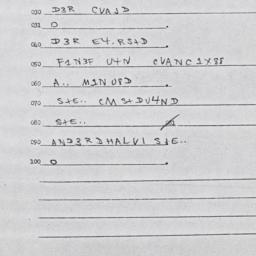 030 D3R CVAJD
031 O
040 D3R E4.RS+D
050 F1N3F U+N CVANC1X88
060 A.. M1NU8D
070 S+E.. CMS+DU4ND
080 S+E..
090 AND3RDHALV1 S+E..
100 O